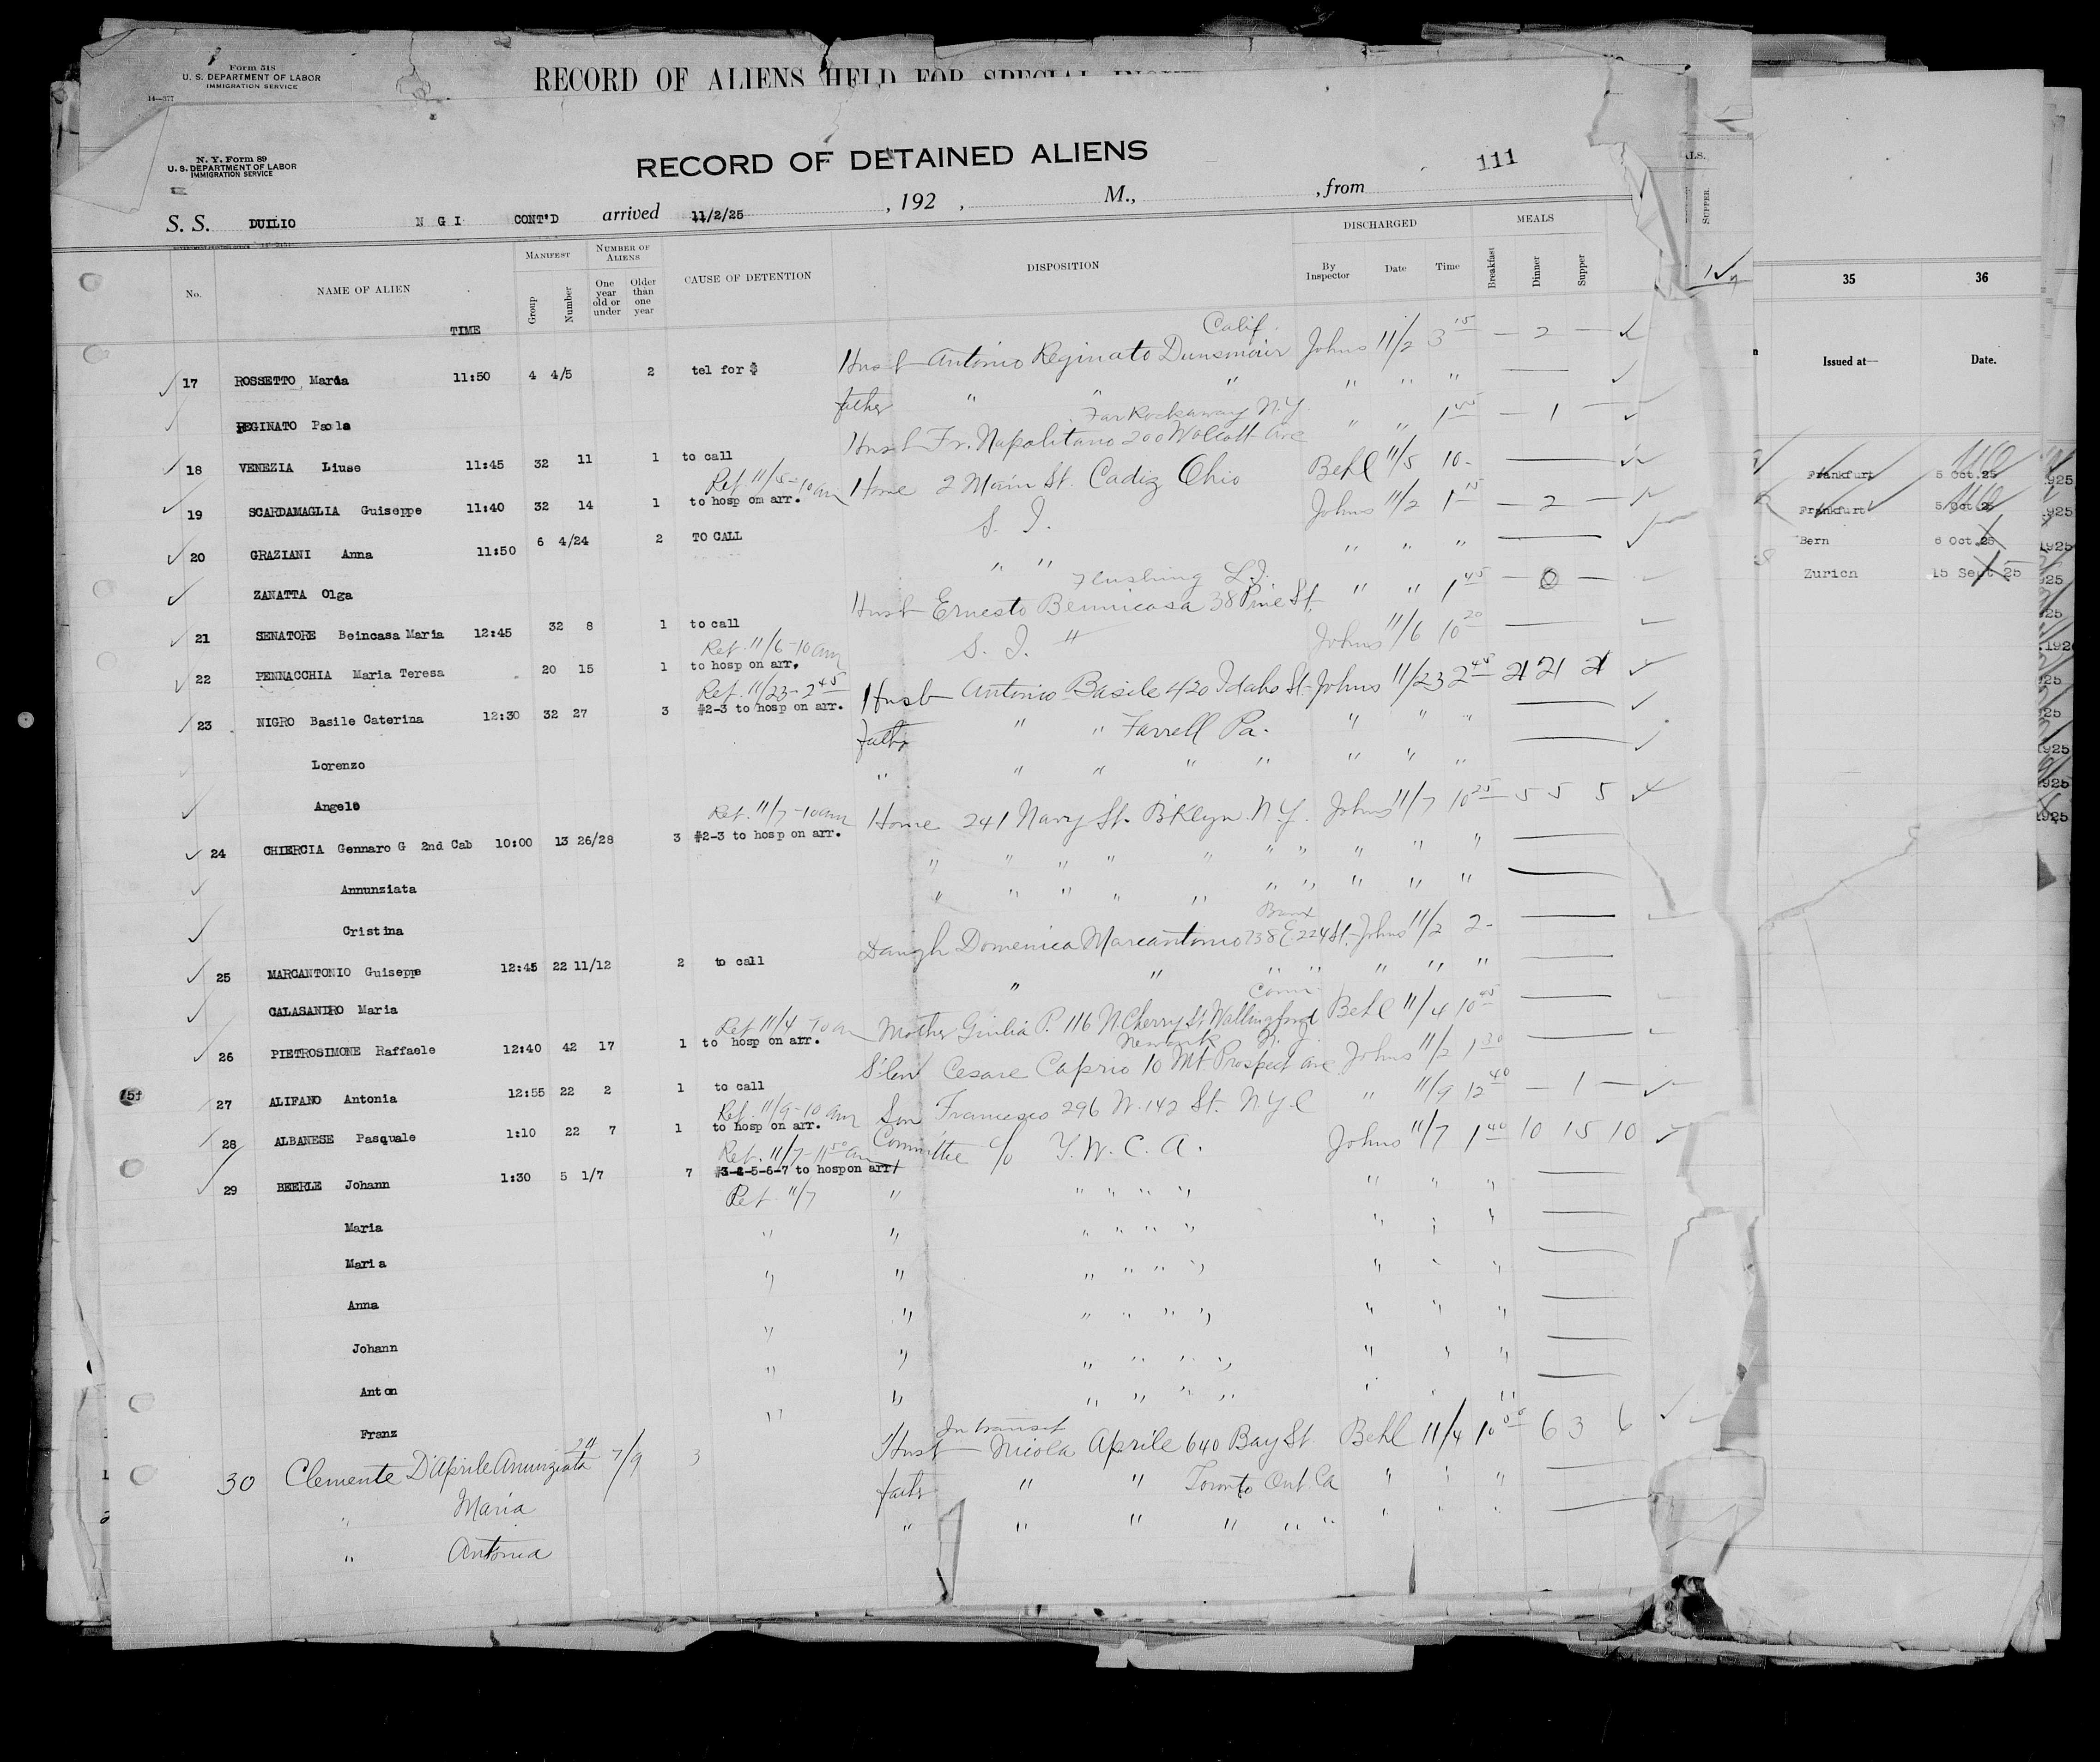 Form 518
U. S. DEPARTMENT OF LABOR
IMMIGRATION SERVICE
14—377
RECORD OF ALIENS HELD FOR SPECIAL
N. Y. Form 89
U. S. DEPARTMENT OF LABOR
IMMIGRATION SERVICE
RECORD OF DETAINED ALIENS
111
S. S. DUILIO N G I CONT'D arrived 11/2/25 , 192 , M., , from
No. NAME OF ALIEN TIME MANIFEST Group Number NUMBER OF ALIENS One year old or under Older than one year CAUSE OF DETENTION DISPOSITION DISCHARGED By Inspector Date Time MEALS Breakfast Dinner Supper
17 ROSSETTO Maria 11:50 4 4/5 2 tel for $ Husb Antonio Reginato Dunsmuir Calif. Johns 11/2 3 15 — 2 —
REGINATO Paola Father " " " " " "
18 VENEZIA Liuse 11:45 32 11 1 to call Husb Fr. Napolitano 200 Wolcott Ave Far Rockaway N.Y. " " 1 45 — 1 —
19 SCARDAMAGLIA Guiseppe 11:40 32 14 1 to hosp om arr. Ret. 11/5-10 am Home 2 Main St. Cadiz Ohio Behl 11/5 10-
20 GRAZIANI Anna 11:50 6 4/24 2 TO CALL S. I. Johns 11/2 1 15 — 2 —
ZANATTA Olga " " " " "
21 SENATORE Beincasa Maria 12:45 32 8 1 to call Husb Ernesto Benincasa 38 Pine St. Flushing L.I. " " 1 45 — 0 —
22 PENNACCHIA Maria Teresa 20 15 1 to hosp on arr. Ret. 11/6-10 am S. I. " Johns 11/6 10 20
23 NIGRO Basile Caterina 12:30 32 27 3 #2-3 to hosp on arr. Ret. 11/23-2 45 Husb Antonio Basile 420 Idaho St- Johns 11/23 2 45 21 21 21
Lorenzo Father " " Farrell Pa. " " "
Angelo " " " " " " " "
24 CHIERCIA Gennaro G 2nd Cab 10:00 13 26/28 3 #2-3 to hosp on arr. Ret. 11/7-10am Home 241 Navy St. B'Klyn. N.Y. Johns 11/7 10 25 5 5 5
Annunziata " " " " " " " " " "
Cristina " " " " " " " " " "
25 MARCANTONIO Guisepp 12:45 22 11/12 2 to call Daugh Domenica Marcantonio 738 E. 224 St. Bronx Johns 11/2 2-
CALASANDRO Maria " " " " " " "
26 PIETROSIMONE Raffaele 12:40 42 17 1 to hosp on arr. Ret 11/4 -10 am Mother Giulia P. 116 N. Cherry St Wallingford Conn Behl 11/4 10 45
27 ALIFANO Antonia 12:55 22 2 1 to call Cesare Caprio 10 Mt. Prospect ave Newark N. J. Johns 11/2 1 30
28 ALBANESE Pasquale 1:10 22 7 1 to hosp on arr. Ret. 11/9-10 am Son Francesco 296 W. 142 St. N.Y.C " 11/9 12 40 — 1 —
29 BEERLE Johann 1:30 5 1/7 7 #3-4-5-6-7 to hospon arr Ret. 11/7-11 50 am Committee c/o Y. W. C. A. Johns 11/7 1 40 10 15 10
Maria Ret. 11/7 " " " " " " " "
Maria " " " " " " " " "
Anna " " " " " " " " "
Johann " " " " " " " " "
Anton " " " " " " " " "
Franz " " " " " " " " "
30 Clemente D'Aprile Anunziata 24 7/9 3 Husb In transit Nicola Aprile 640 Bay St. Behl 11/4 10 6 3 6
" Maria Father " " Toronto Ont Ca " " "
" Antonia " " " " " " " " "
ALS.
SUPPER
35 36
Issued at— Date.
Frankfurt 5 Oct.25
Frankfurt 5 Oct 25
Bern 6 Oct.25
Zurich 15 Sept 25